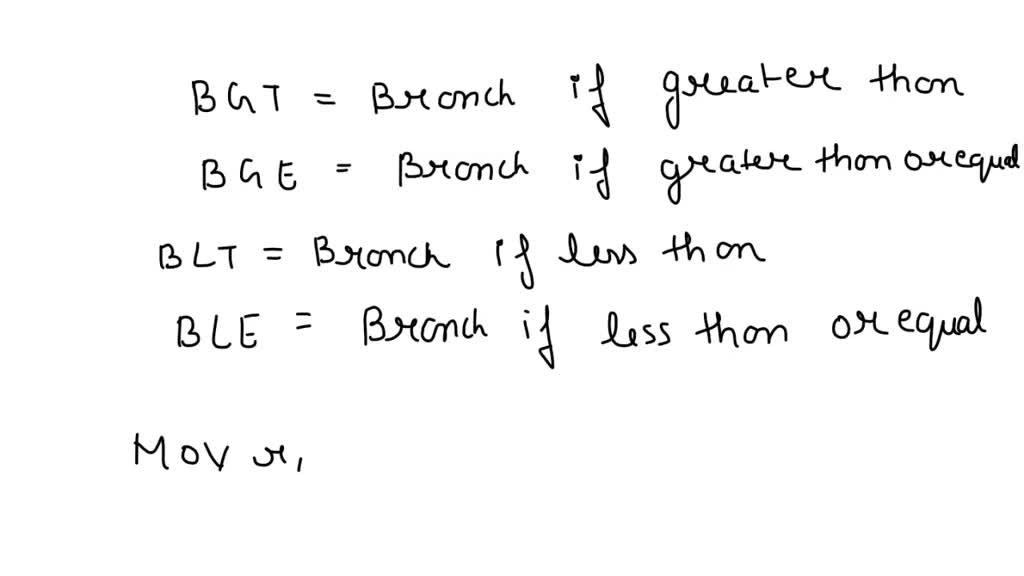 BGT = Branch if greater than
BGE = Branch if greater than or equal
BLT = Branch if less than
BLE = Branch if less than or equal
MOV r,